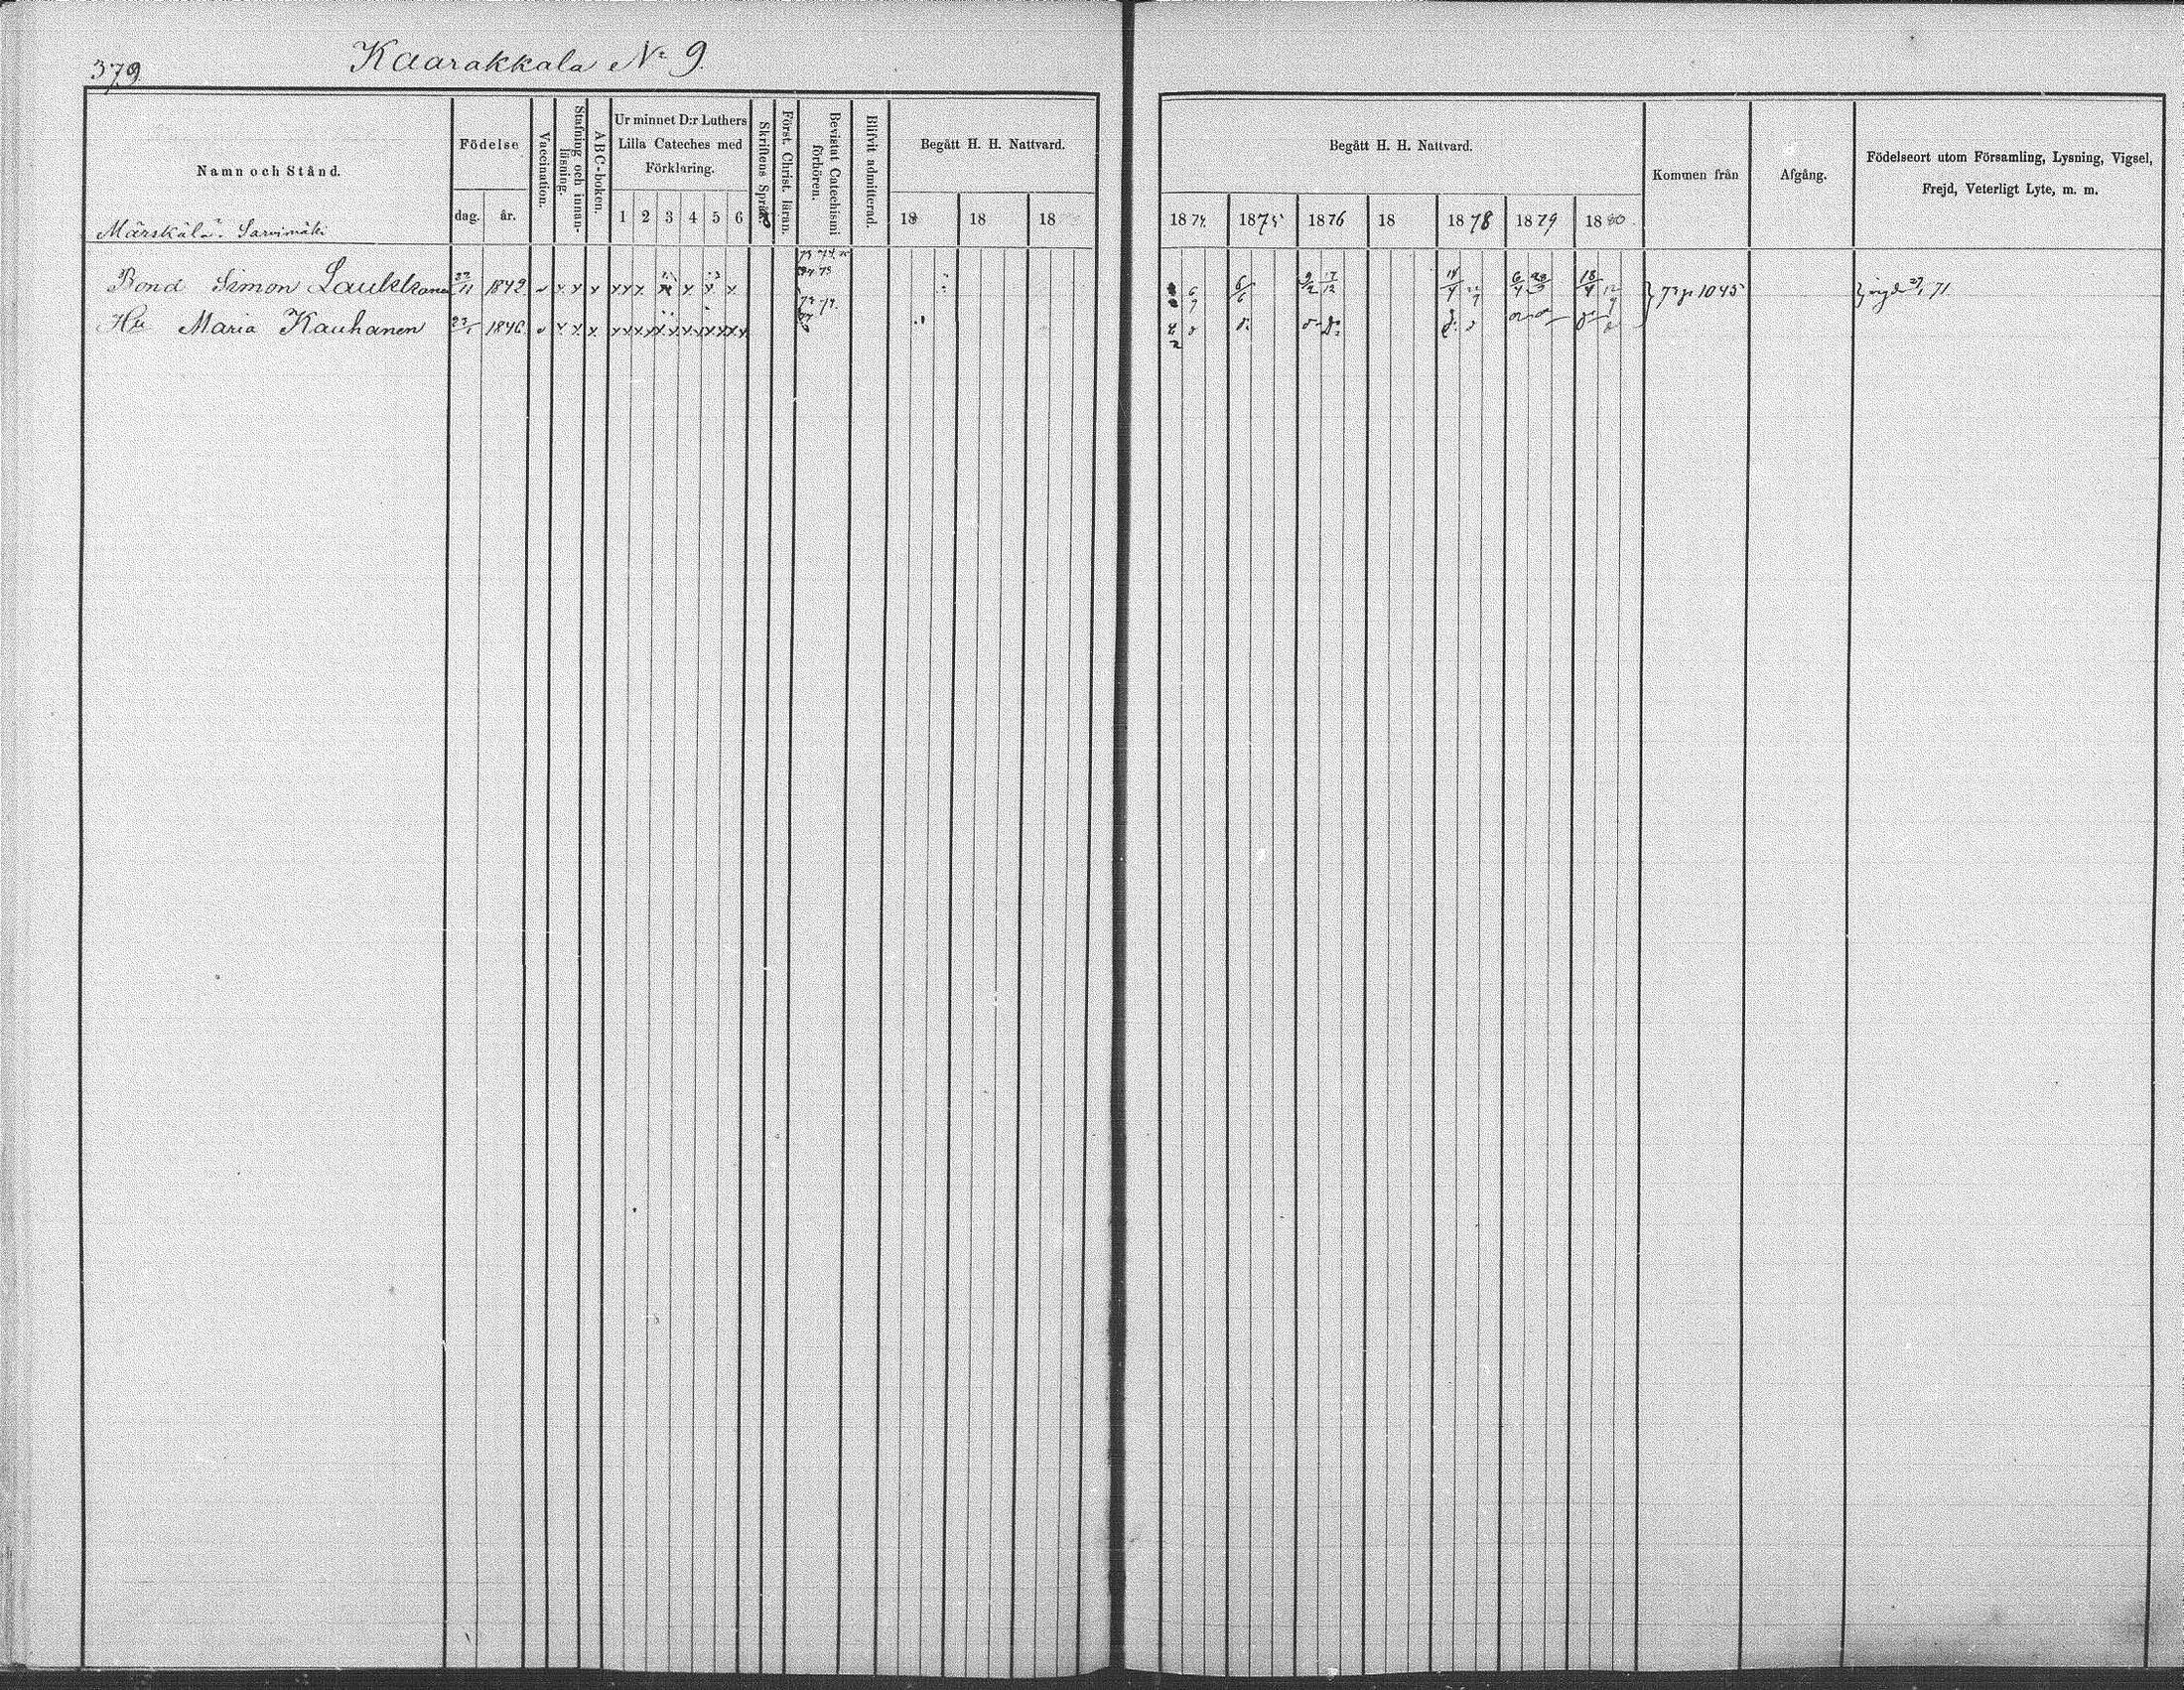 379.
Kaarakkala No 9.
Namn och Stånd.
Födelse
dag.
år.
Vaccination.
Stafning och innanläsning.
ABC-boken.
Ur minnet D:r Luthers
Lilla Cateches med
Förklaring.
1 2 3 4 5 6
Skriftens Språk
Först. Christ. läran.
Bevistat Catechismi
förhören.
Blifvit admitterad.
Begått H. H. Nattvard.
18 18 18
Begått H. H. Nattvard.
1874. 1875 1876 18 1878 1879 1880.
Kommen från
Afgång.
Födelseort utom Församling, Lysning, Vigsel,
Frejd, Veterligt Lyte, m. m.
Märskälä. Sarvimäki
Bond Simon Laukkanen 22/11 1842 v x x x x x x x x x x 6/9 6/6 9/2 17/12 14/4 6/4 18/4 12/9 } 73 p 1045 } vigde 71.
Hu Maria Kauhanen 1846 v x x x x x x x x x x x x x x